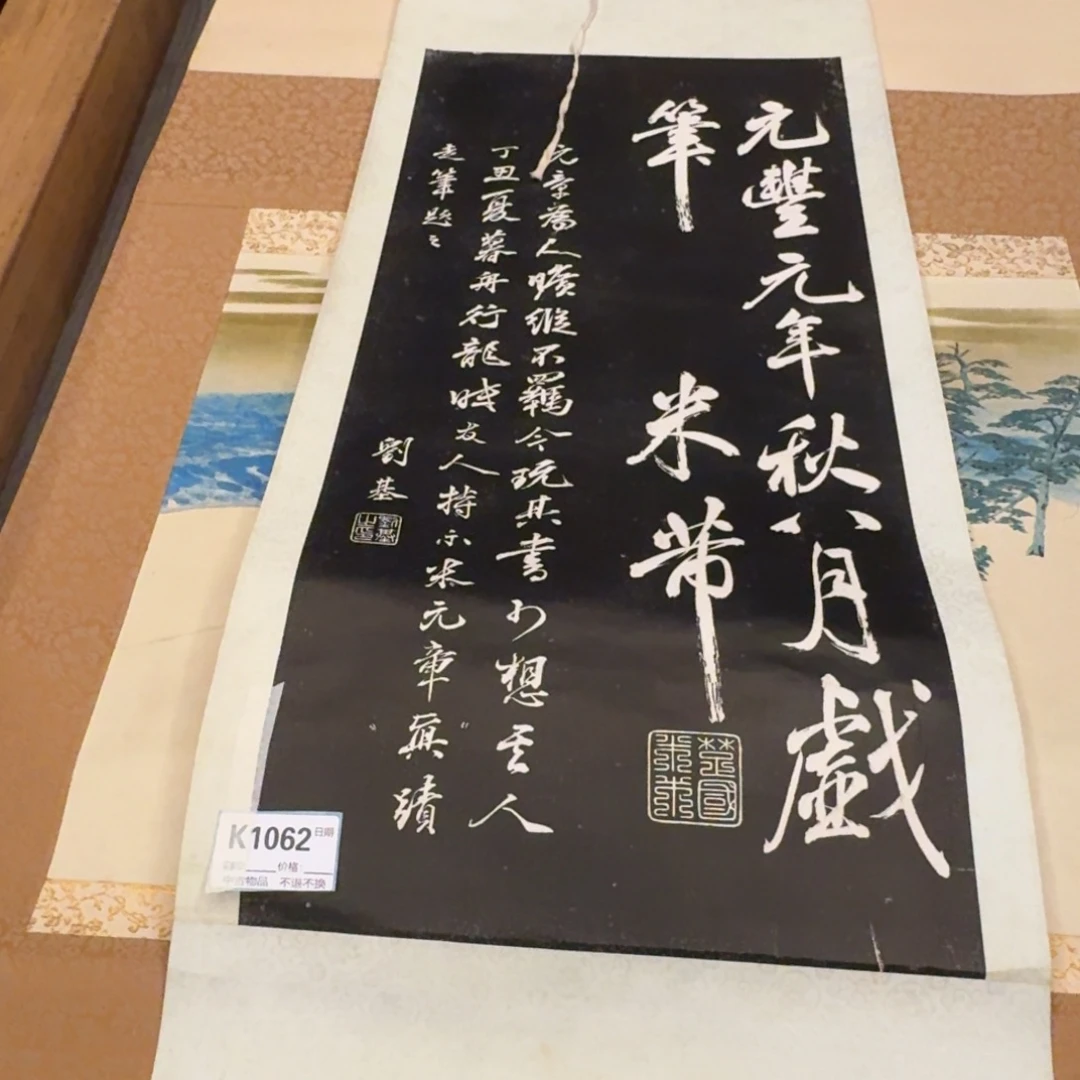 元豐元年秋八月戲
筆 米芾
楚國米芾
元章為人曠縱不羈今玩其書可想其人
丁丑夏暮舟行龍友人持示米元章真蹟
走筆題之
劉基
劉基之印
K1062 日期
价格
物品 不退不换